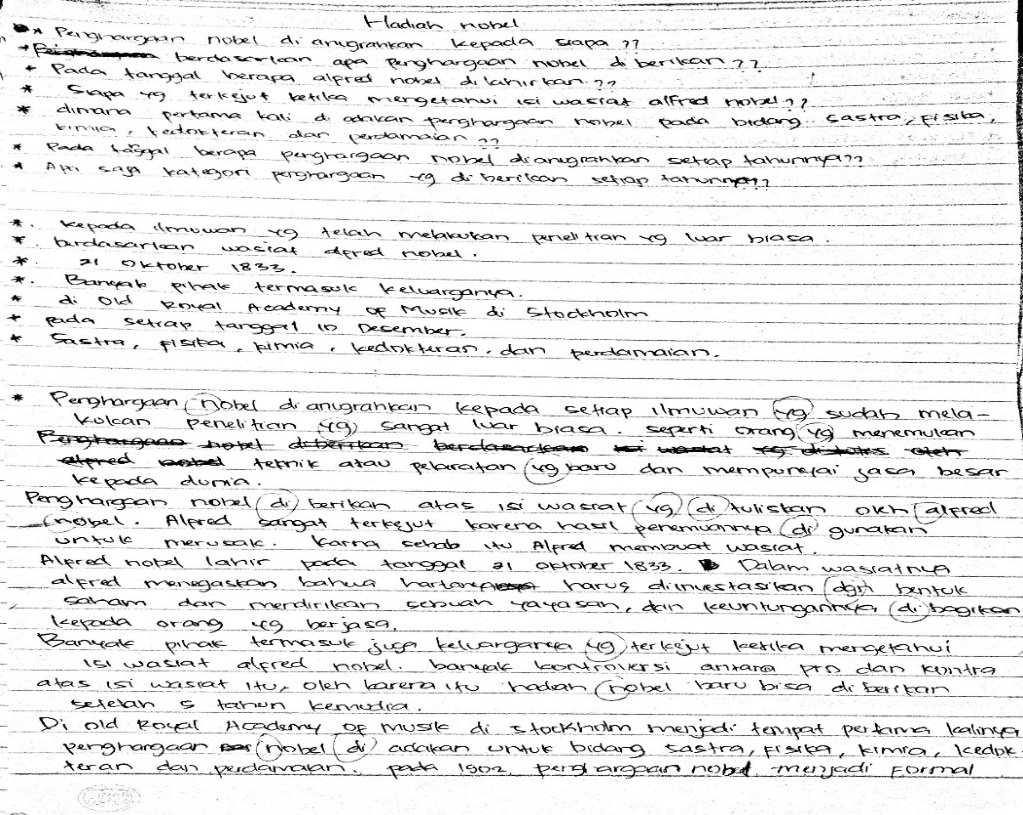 Hadiah nobel
* Penghargaan nobel di anugrahkan kepada siapa ??
* berdasarkan apa penghargaan nobel di berikan ??
* Pada tanggal berapa alfred nobel di lahirkan ??
* Siapa yg terkejut ketika mengetahui isi wasiat alfred nobel ??
* dimana pertama kali di adakan penghargaan nobel pada bidang sastra, fisika,
kimia, kedokteran dan perdamaian ??
* Pada tanggal berapa penghargaan nobel dianugrahkan setiap tahunnya ??
* Apa saja kategori penghargaan yg di berikan setiap tahunnya ??
* Kepada ilmuwan yg telah melakukan penelitian yg luar biasa.
* berdasarkan wasiat alfred nobel.
* 21 Oktober 1833.
* Banyak pihak termasuk keluarganya.
* di Old Royal Academy of Musik di Stockholm
* pada setiap tanggal 10 Desember.
* Sastra, fisika, kimia, kedokteran, dan perdamaian.
* Penghargaan nobel dianugrahkan kepada setiap ilmuwan yg sudah mela-
kukan penelitian yg sangat luar biasa. seperti orang yg menemukan
teknik atau pelaratan yg baru dan mempunyai jasa besar
kepada dunia.
Penghargaan nobel di berikan atas isi wasiat yg di tuliskan oleh alfred
nobel. Alfred sangat terkejut karena hasil penemuannya di gunakan
untuk merusak. Karna sebab itu Alfred membuat wasiat.
Alfred nobel lahir pada tanggal 21 oktober 1833. Dalam wasiatnya
alfred menegaskan bahwa hartanya harus diinvestasikan dgn bentuk
saham dan mendirikan sebuah yayasan, dan keuntungannya di bagikan
kepada orang yg berjasa.
Banyak pihak termasuk juga keluarganya yg terkejut ketika mengetahui
isi wasiat alfred nobel. banyak kontroversi antara pro dan kontra
atas isi wasiat itu, oleh karena itu hadiah nobel baru bisa di berikan
setelah 5 tahun kemudia.
Di old Royal Academy of musik di stockholm menjadi tempat pertama kalinya
penghargaan nobel di adakan untuk bidang sastra, fisika, kimia, kedok-
teran dan perdamaian. pada 1902, penghargaan nobel menjadi formal